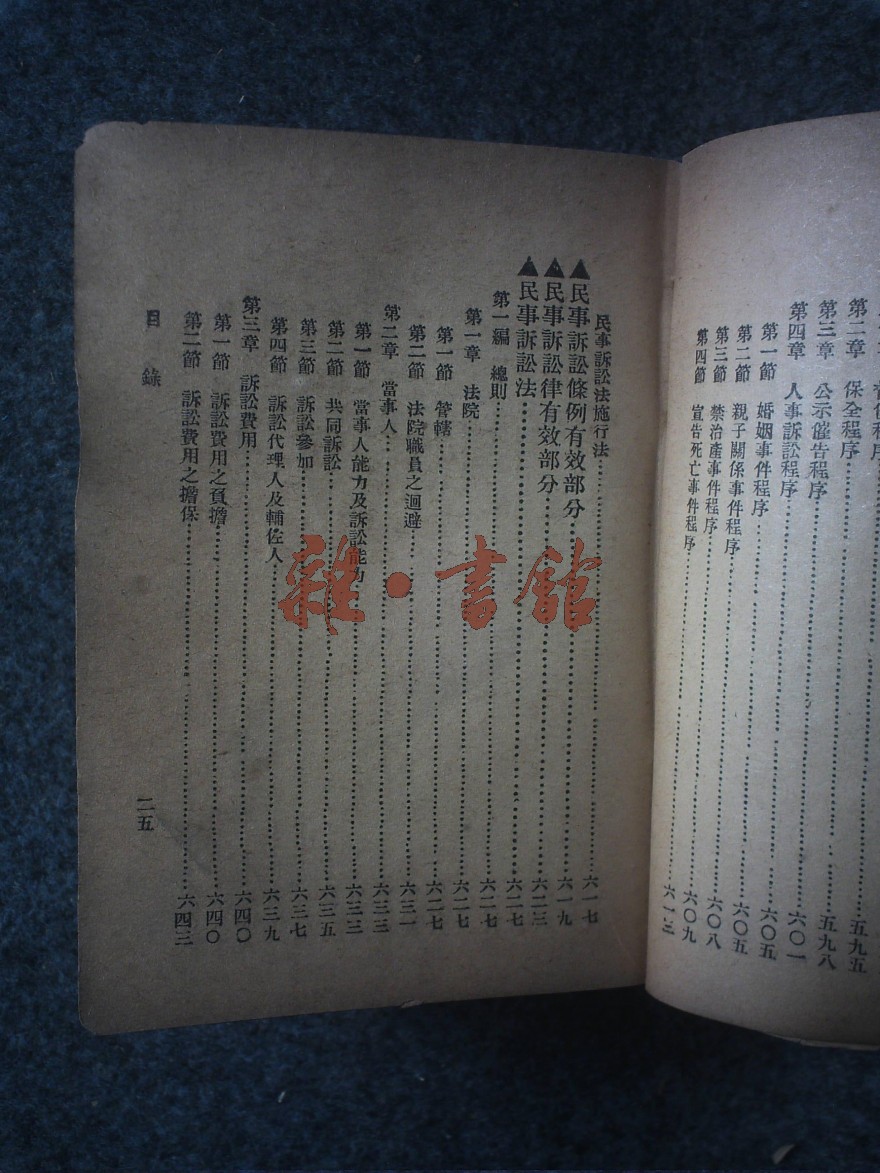 第二章　保全程序……五九五
第三章　公示催告程序……五九八
第四章　人事訴訟程序……六〇一
第一節　婚姻事件程序……六〇五
第二節　親子關係事件程序……六〇五
第三節　禁治產事件程序……六〇八
第四節　宣告死亡事件程序……六〇九
六一三
民事訴訟法施行法……六一七
▲民事訴訟條例有效部分……六一九
▲民事訴訟律有效部分……六二三
▲民事訴訟法……六二七
第一編　總則……六二七
第一章　法院……六二七
第一節　管轄……六二七
第二節　法院職員之迴避……六三一
第二章　當事人……六三三
第一節　當事人能力及訴訟能力……六三三
第二節　共同訴訟……六三五
第三節　訴訟參加……六三七
第四節　訴訟代理人及輔佐人……六三九
第三章　訴訟費用……六四〇
第一節　訴訟費用之負擔……六四〇
第二節　訴訟費用之擔保……六四三
目錄
二五
雜·書館